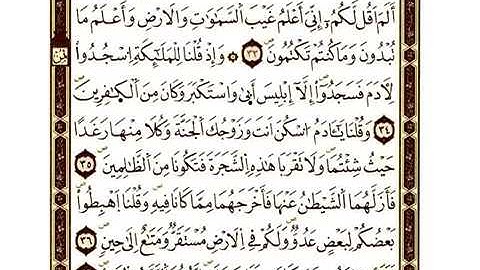 أَلَمْ أَقُلْ لَكُمْ إِنِّي أَعْلَمُ غَيْبَ السَّمٰوَاتِ وَالْاَرْضِ وَأَعْلَمُ مَا
تُبْدُونَ وَمَا كُنْتُمْ تَكْتُمُونَ ﴿٣٣﴾ وَإِذْ قُلْنَا لِلْمَلٰٓئِكَةِ اسْجُدُوا
لِاٰدَمَ فَسَجَدُٓوا إِلَّٓا إِبْلِيسَ أَبٰى وَاسْتَكْبَرَ وَكَانَ مِنَ الْكَافِرِينَ
﴿٣٤﴾ وَقُلْنَا يَٓا اٰدَمُ اسْكُنْ اَنْتَ وَزَوْجُكَ الْجَنَّةَ وَكُلَا مِنْهَا رَغَدًا
حَيْثُ شِئْتُمَا وَلَا تَقْرَبَا هٰذِهِ الشَّجَرَةَ فَتَكُونَا مِنَ الظَّالِمِينَ ﴿٣٥﴾
فَأَزَلَّهُمَا الشَّيْطَانُ عَنْهَا فَأَخْرَجَهُمَا مِمَّا كَانَا فِيهِ وَقُلْنَا اهْبِطُوا
بَعْضُكُمْ لِبَعْضٍ عَدُوٌّ وَلَكُمْ فِي الْاَرْضِ مُسْتَقَرٌّ وَمَتَاعٌ إِلٰى حِينٍ ﴿٣٦﴾